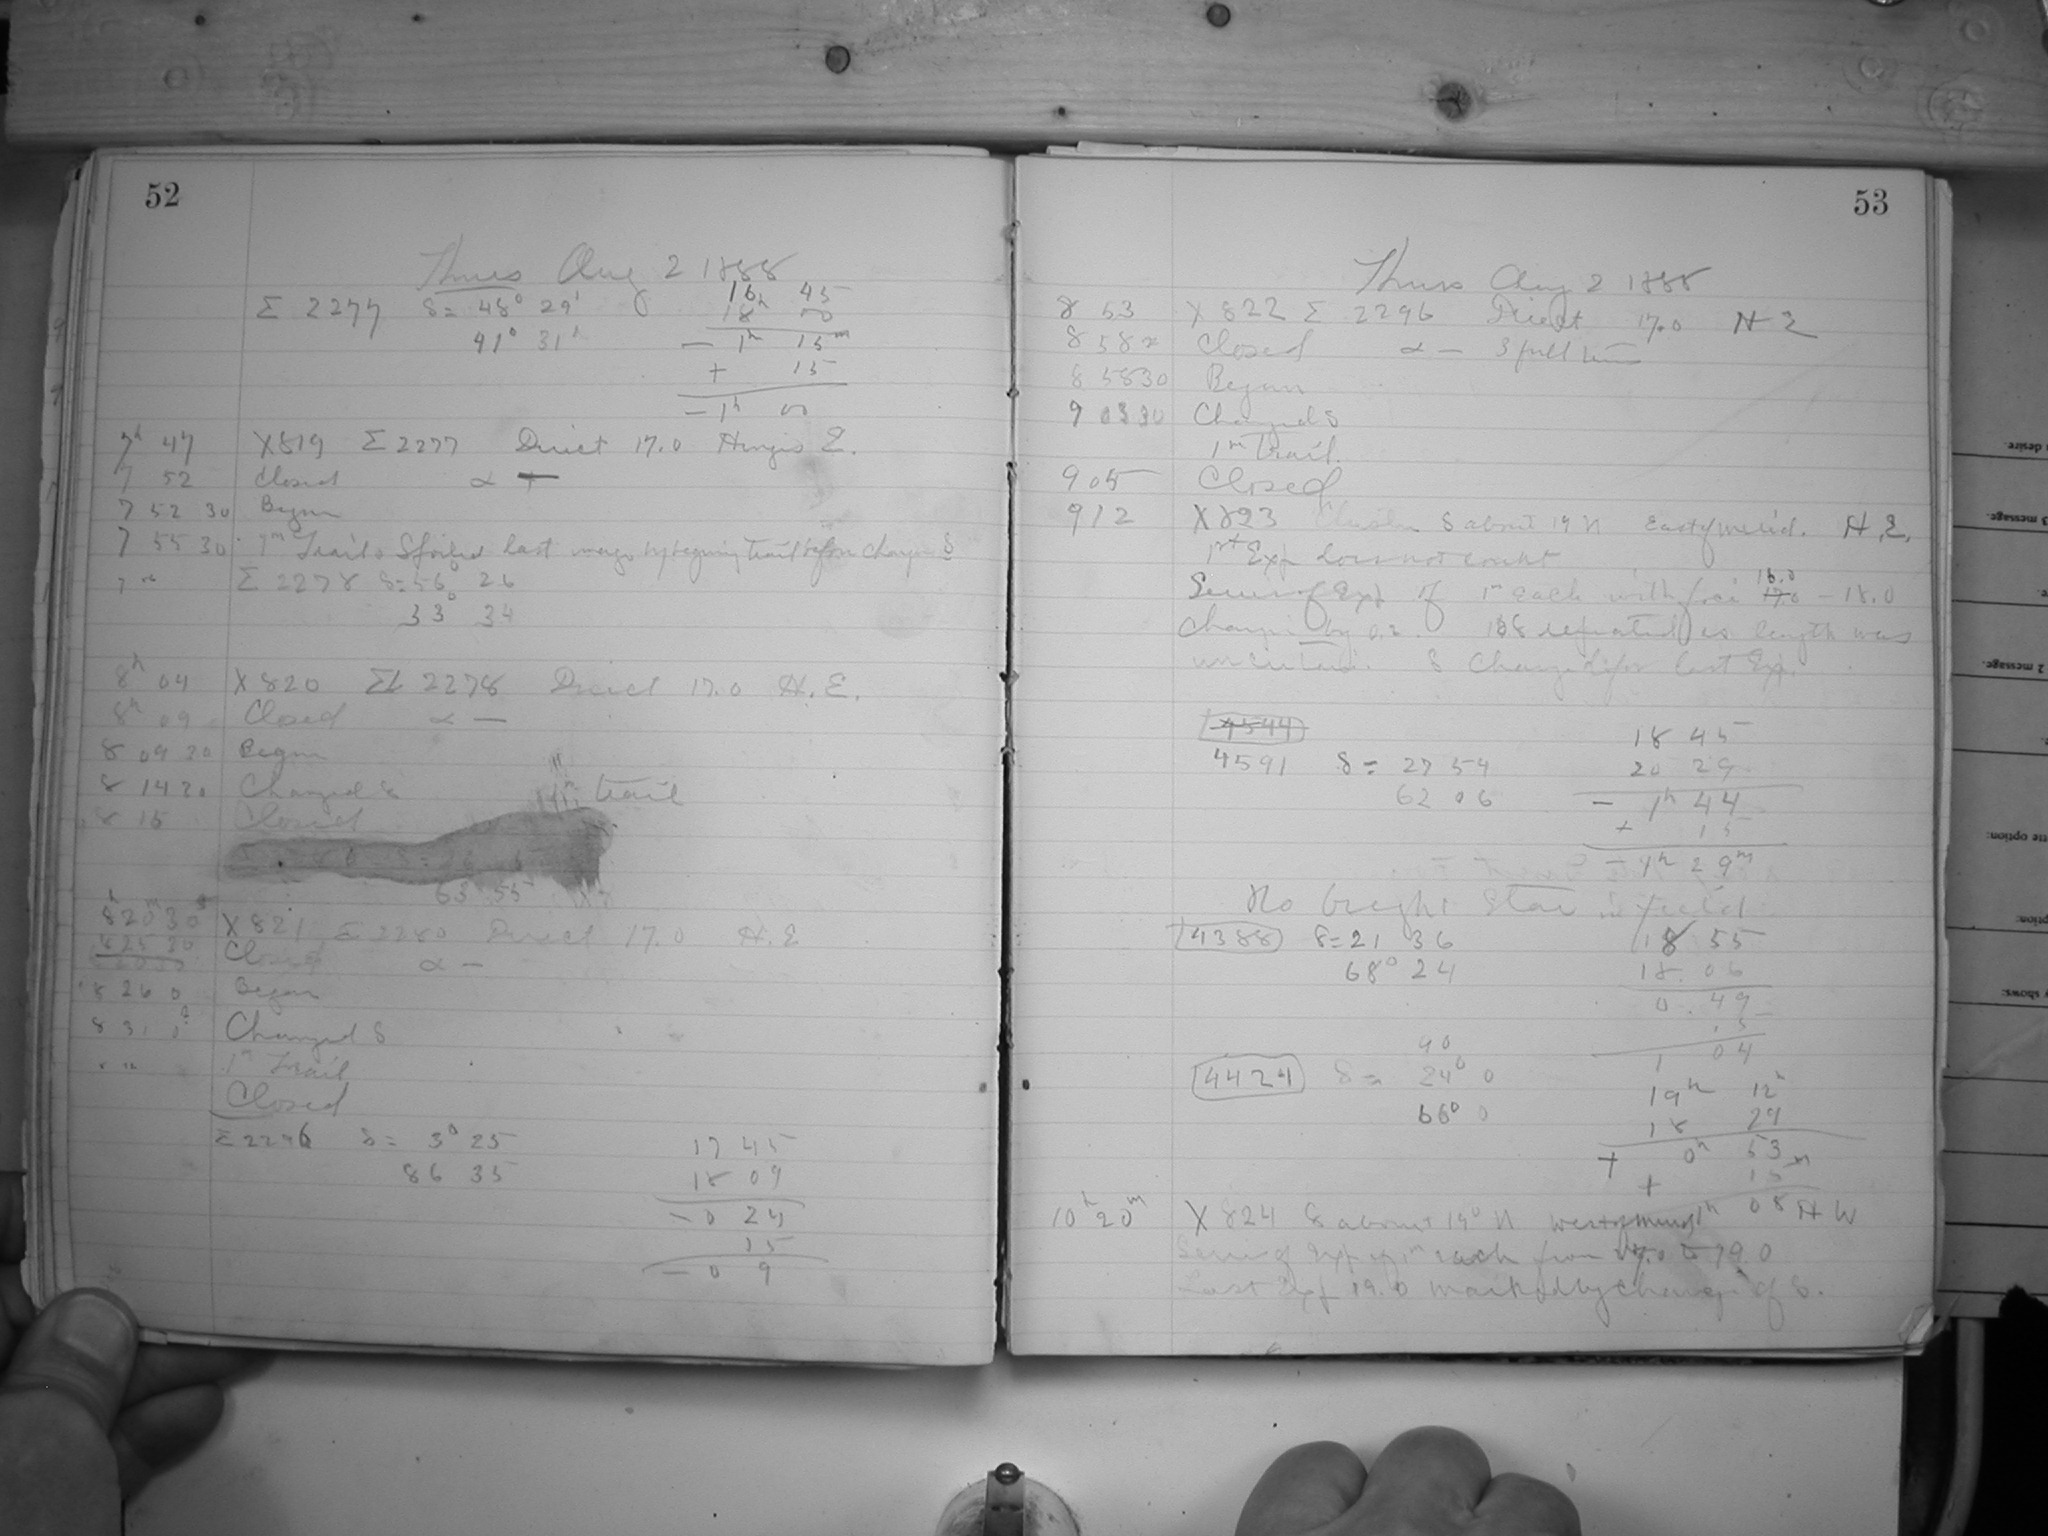 52
Thurs Aug 2 1888
Σ 2277 δ = 48° 29'
41° 31'
16h 45
18h 00
- 1h 15m
+ 15
- 1h 00
7h 47 X819 Σ 2277 Direct 17.0 Hinges E.
7 52 Closed α +
7 52 30 Began
7 55 30 1m Trail Spoiled last by trail before change δ
Σ 2278 δ = 56° 26
33° 34
8h 04 X820 Σ 2278 Direct 17.0 H.E.
8h 09 Closed α -
8 09 20 Began
8 14 20 Changed δ 1m trail
8 15 Closed
63 55
8h 20m 30s X821 Σ 2280 Direct 17.0 H.E
8 25 20 Closed α -
8 26 0 Began
8 31 0 Changed δ
1m Trail
Closed
Σ 2296 δ = 3° 25
86 35
17 45
18 09
- 0 24
15
- 0 9
53
Thurs Aug 2 1888
8 53 X822 Σ 2296 Direct 17.0 H E
8 58 Closed α - 3 full
8 58 30 Began
9 03 30 Changed δ
1m trail.
9 05 Closed
9 12 X823 δ about 19 N East of merid. H.E.
1st Exp does not count
Series of Exp of 1m each with foci 16.0 17.0 - 18.0
Changing by 0.2. 16.8 repeated as length was
uncertain. δ Changed for last Exp.
4544
4591 δ = 27 54
62 06
18 45
20 29
- 1h 44
+ 15
- 1h 29m
No bright Star in field
4388 δ = 21 36
68° 24
18 55
18 06
0 49
15
1 04
90
4424 δ = 24° 0
66° 0
19h 12
18 29
+ 0h 53m
+ 15
1h 08
10h 20m X824 δ about 19° N West of merid H W
Series of Exp of 1m each from 17.0 to 19.0
Last Exp 19.0 marked by change of δ.